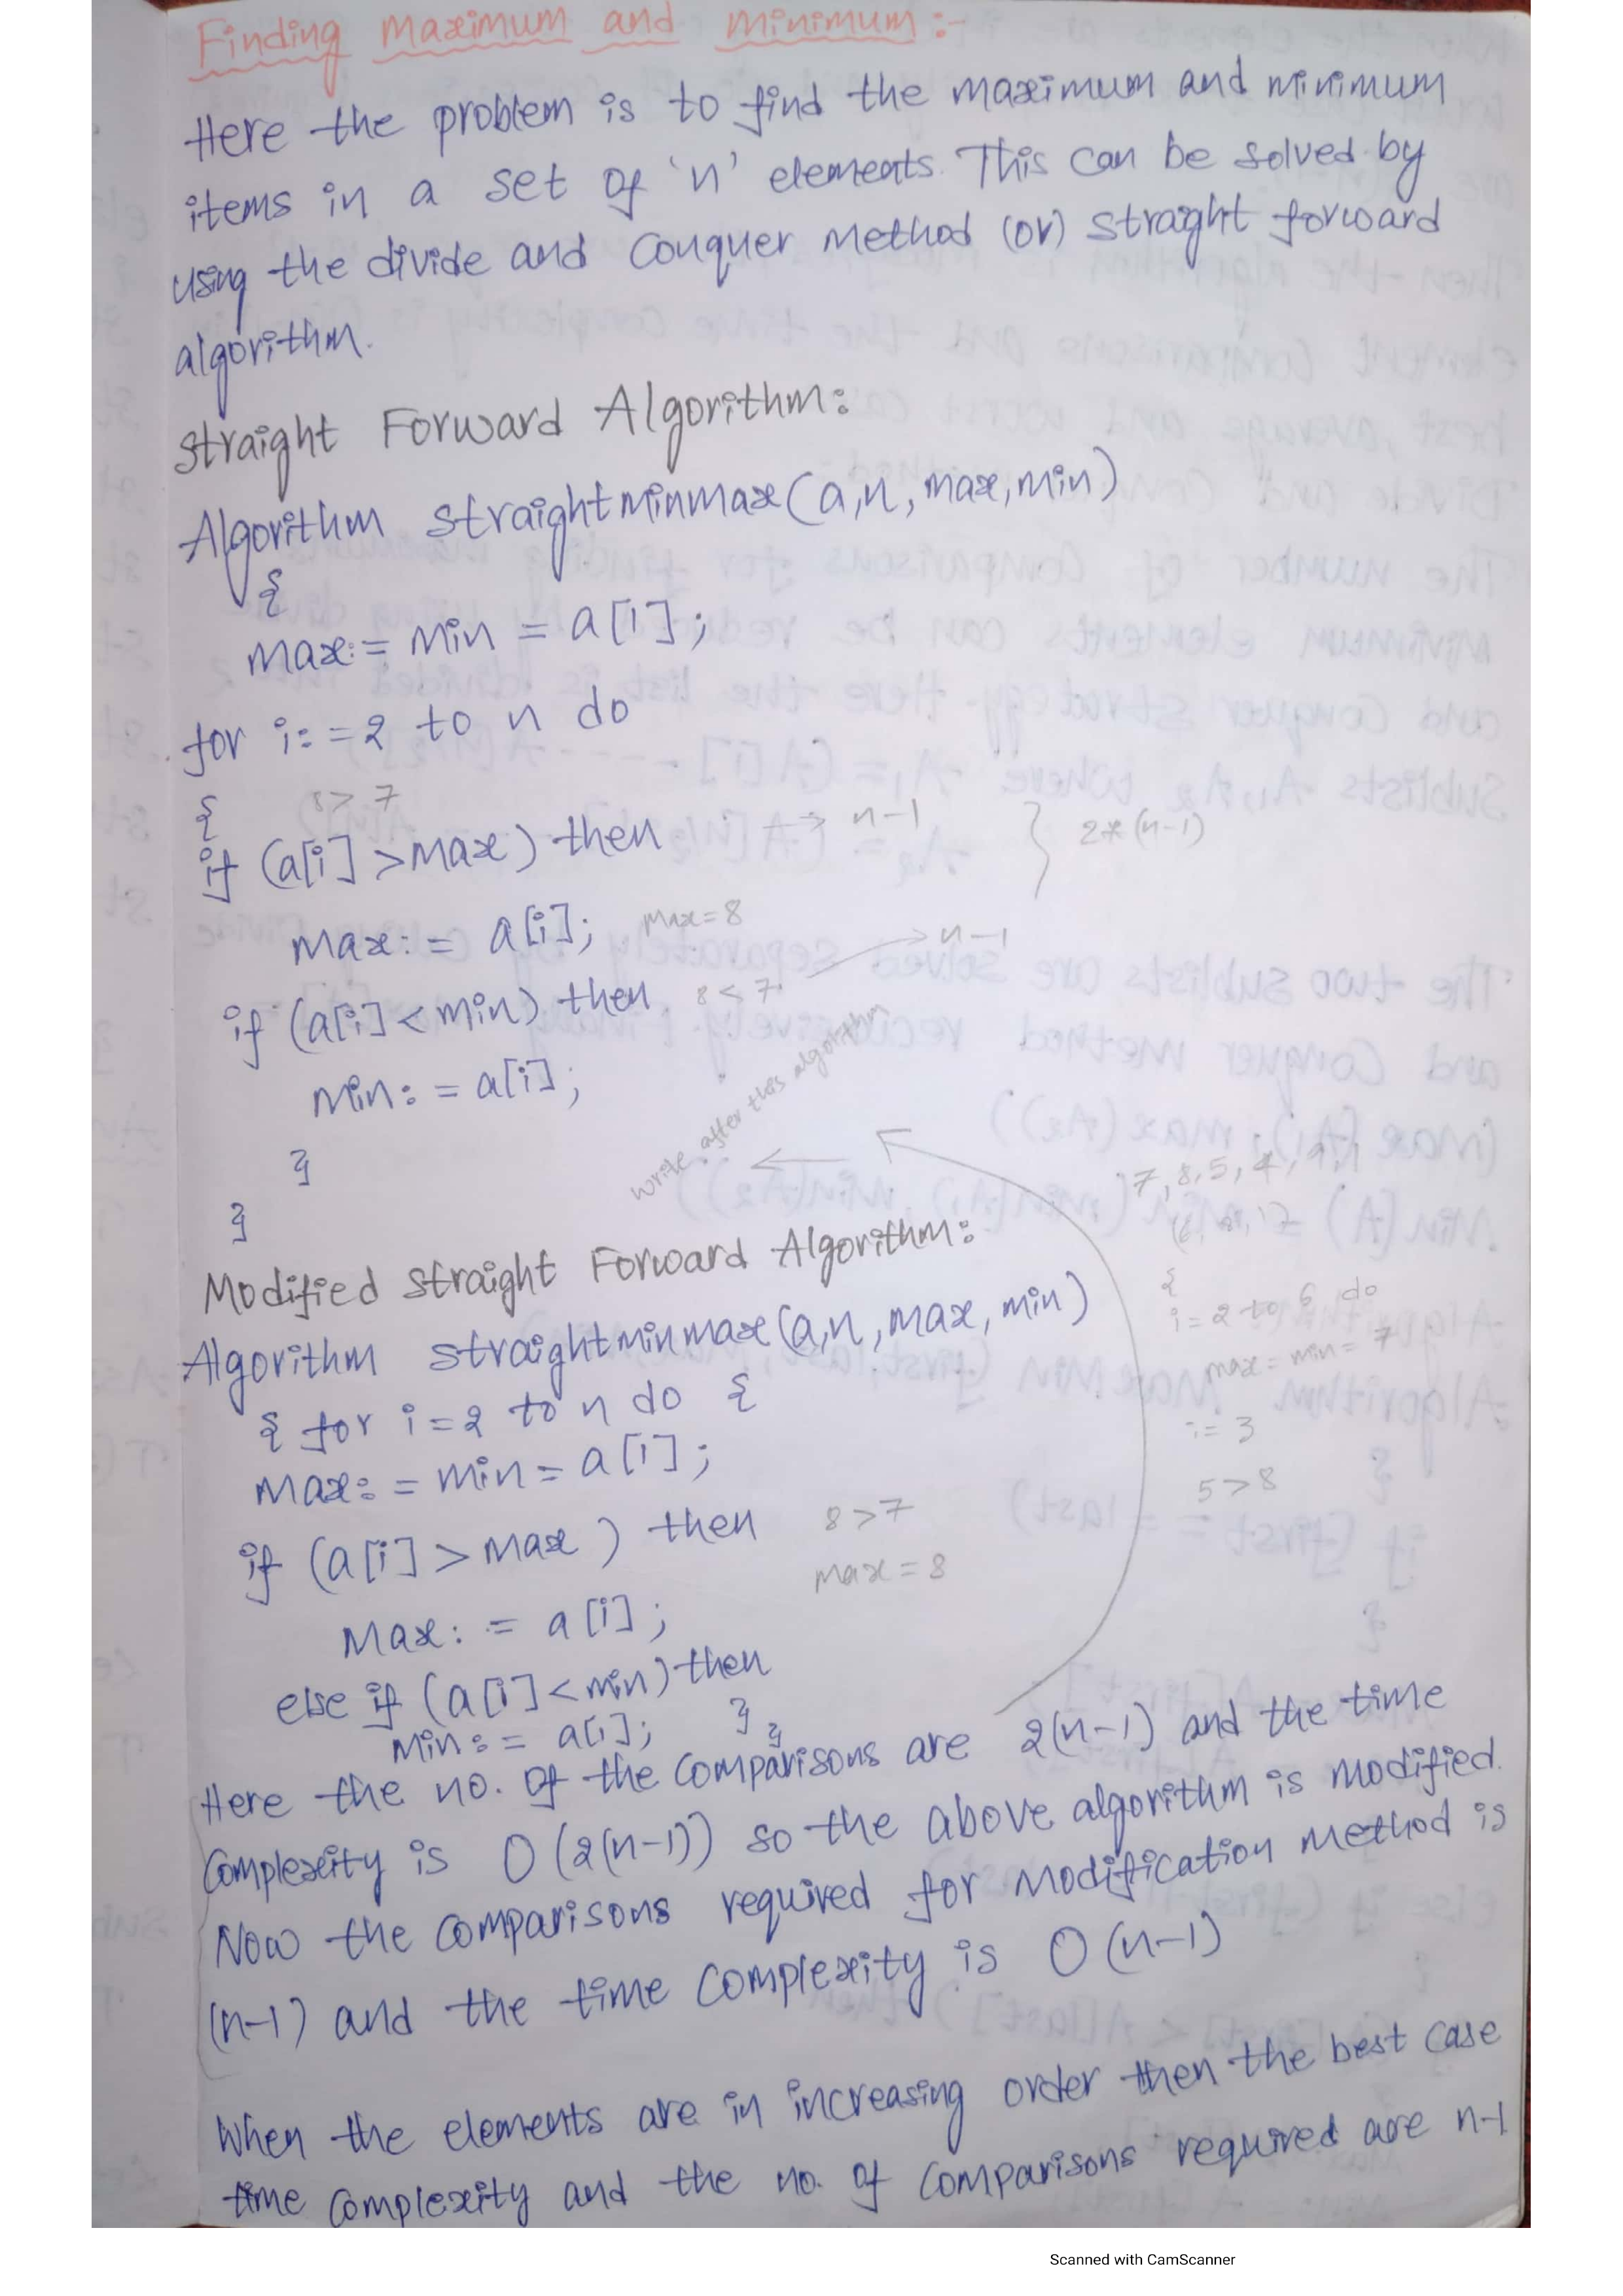 Finding Maximum and Minimum:-
Here the problem is to find the maximum and minimum
items in a set of 'n' elements. This can be solved by
using the divide and Conquer Method (or) straight forward
algorithm.
straight Forward Algorithm:
Algorithm straightminmax(a,n,max,min)
{
max:= min = a[1];
for i:=2 to n do
{ 8 > 7
if (a[i] > max) then → n-1 } 2*(n-1)
max:= a[i]; max=8
if (a[i] < min) then 8 < 7 → n-1
min:= a[i];
write after this algorithm
}
7, 8, 5, 4,
}
Modified straight Forward Algorithm:
{
Algorithm straightminmax(a,n,max,min)
i=2 to 6 do
max = min = 7
{ for i=2 to n do {
i= 3
max:= min = a[1];
5 > 8
if (a[i] > max) then 8 > 7
max = 8
Max:= a[i];
else if (a[i] < min) then
Min:= a[i]; } }
Here the no. of the comparisons are 2(n-1) and the time
Complexity is O(2(n-1)) so the above algorithm is modified.
Now the comparisons required for modification method is
(n-1) and the time complexity is O(n-1)
When the elements are in increasing order then the best case
time complexity and the no. of comparisons required are n-1
Scanned with CamScanner